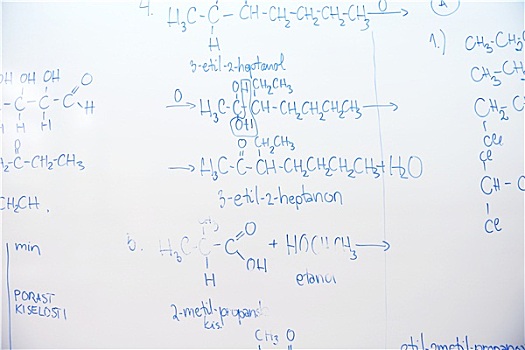 4. H₃C-C-CH-CH₂-CH₂-CH₂-CH₃ O
H
3-etil-2-heptanol
OH CH₂CH₃
O H₃C-C-CH-CH₂CH₂CH₂CH₃
OH
O CH₂CH₃
H₃C-C-CH-CH₂CH₂CH₂CH₃+H₂O
3-etil-2-heptanon
5. H₃C-C-C O
OH
H
+
etanol
2-metil-propanska
kis.
CH₃ O
OH OH O
-C-C-C
H
H H
-C-CH₂-CH₃
min
PORAST
KISELOSTI
A
1.)
CH₃-CH₂
CH₃-CH
CH₂-C
Cl
Cl
CH-C
Cl